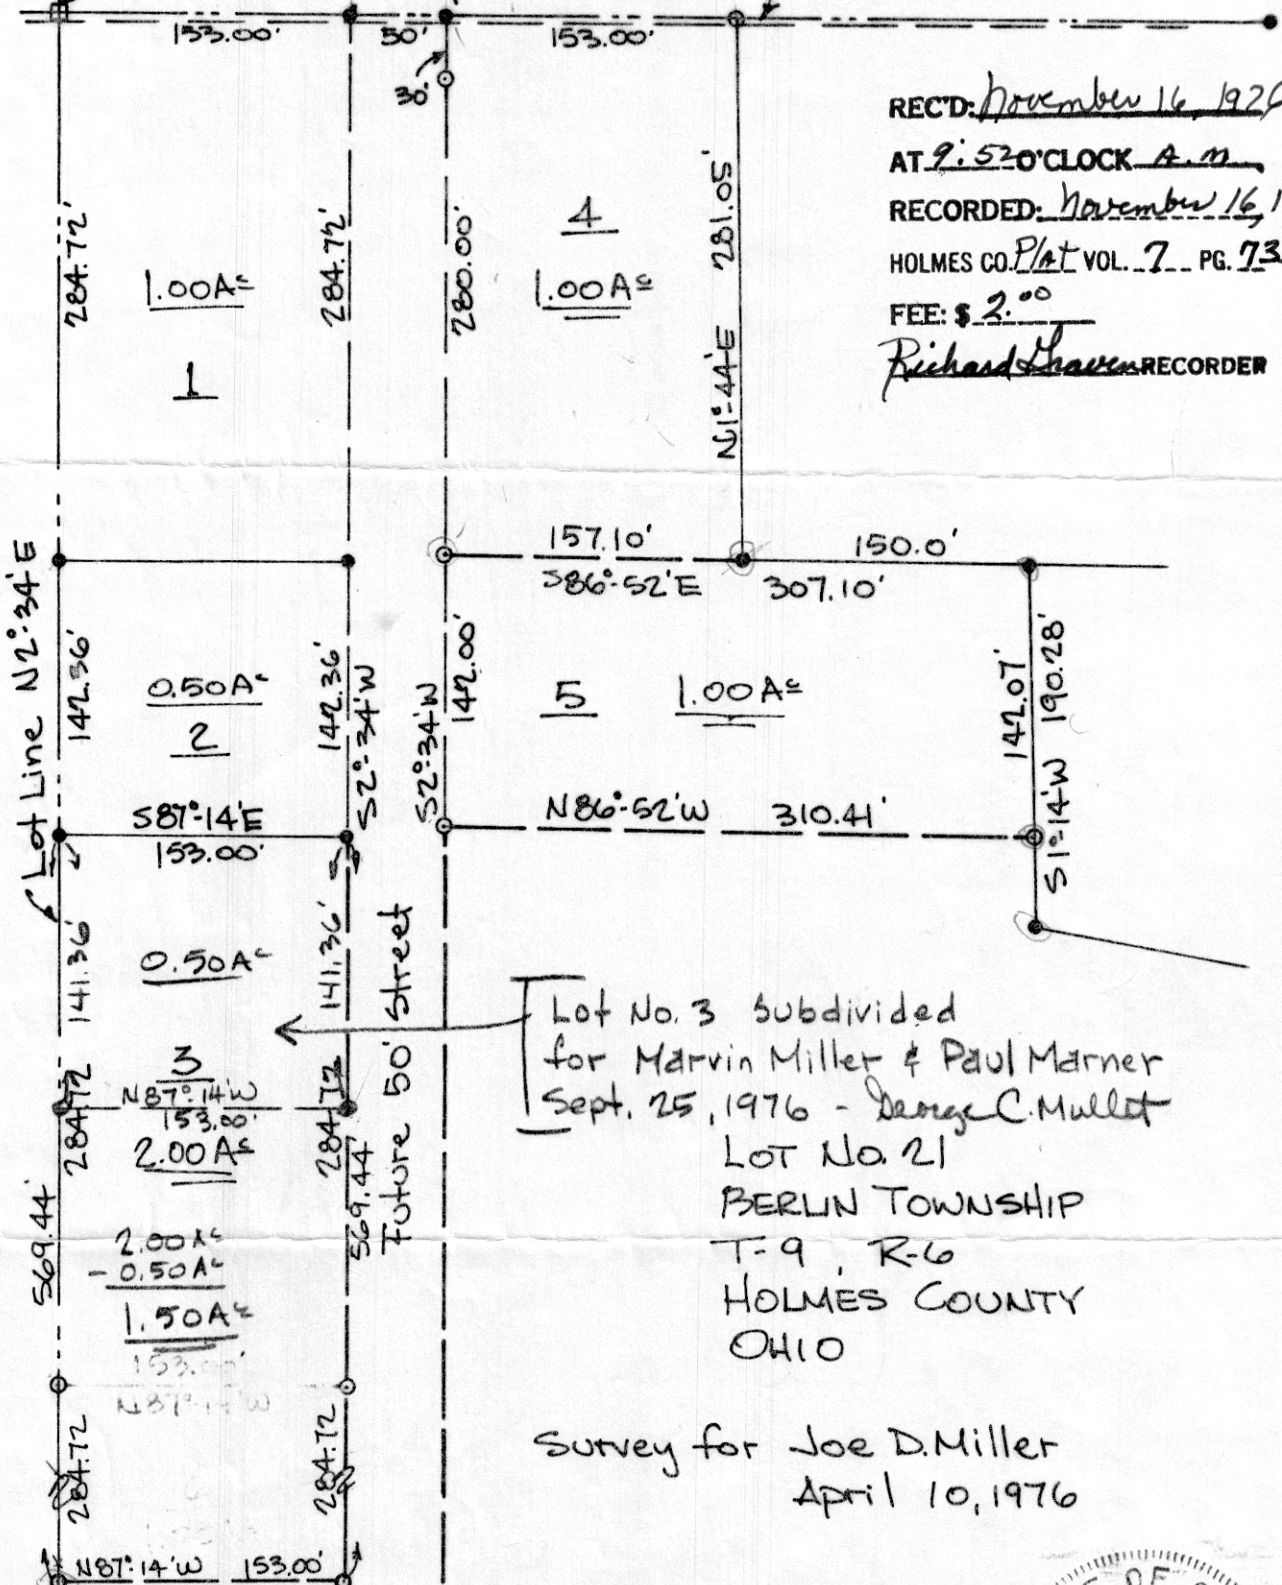 153.00'
50'
153.00'
30'
REC'D: November 16, 197
AT 9:52 O'CLOCK A.M.
RECORDED: November 16, 1
HOLMES CO. Plat VOL. 7 PG. 73
FEE: $ 2.00
Richard Graven RECORDER
284.72'
1.00Ac
1
284.72'
280.00'
4
1.00Ac
N1°-44'E 281.05'
157.10'
S86°-52'E
150.0'
307.10'
Lot Line N2°-34'E
142.36'
0.50Ac
2
142.36'
S2°-34'W
S2°-34'W
142.00'
5
1.00Ac
142.07'
S1°-14'W 190.28'
S87°-14'E
153.00'
N86°-52'W 310.41'
141.36'
0.50Ac
141.36'
Future 50' Street
3
N87°-14'W
153.00'
284.72
284.72
2.00Ac
569.44'
569.44'
2.00Ac
- 0.50Ac
1.50Ac
153.00'
N87°-14'W
284.72
284.72
N87°-14'W 153.00'
Lot No. 3 Subdivided
for Marvin Miller & Paul Marner
Sept. 25, 1976 - George C. Mullet
LOT No. 21
BERLIN TOWNSHIP
T-9, R-6
HOLMES COUNTY
OHIO
Survey for Joe D. Miller
April 10, 1976
OF